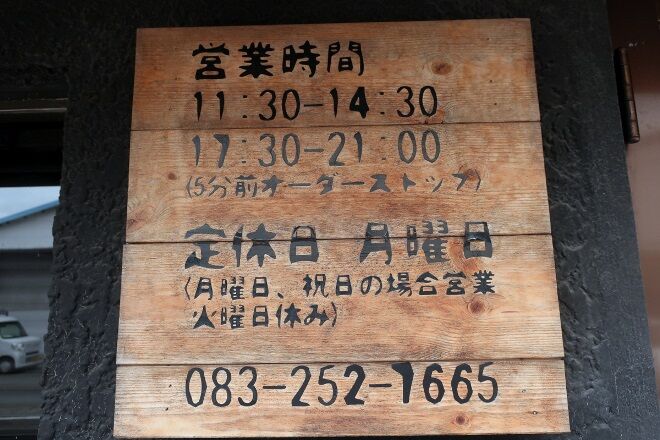 営業時間
11:30-14:30
17:30-21:00
(5分前オーダーストップ)
定休日 月曜日
(月曜日、祝日の場合営業
火曜日休み)
083-252-1665